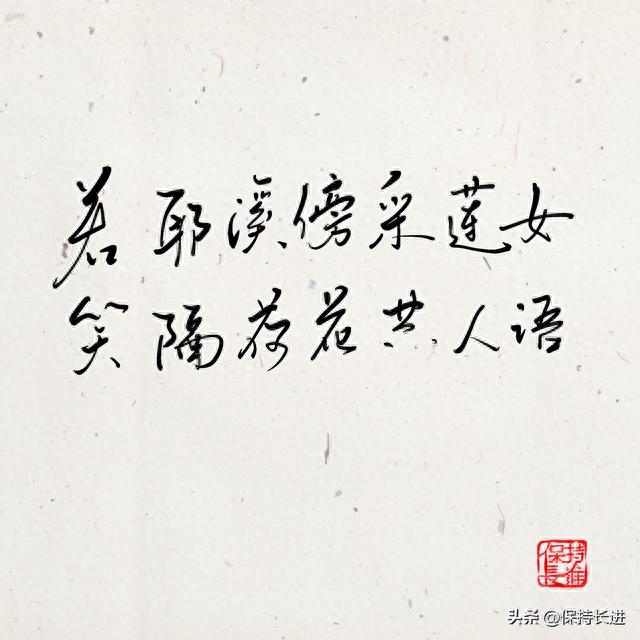 若耶溪傍采莲女
笑隔荷花共人语
保持长进
头条 @保持长进